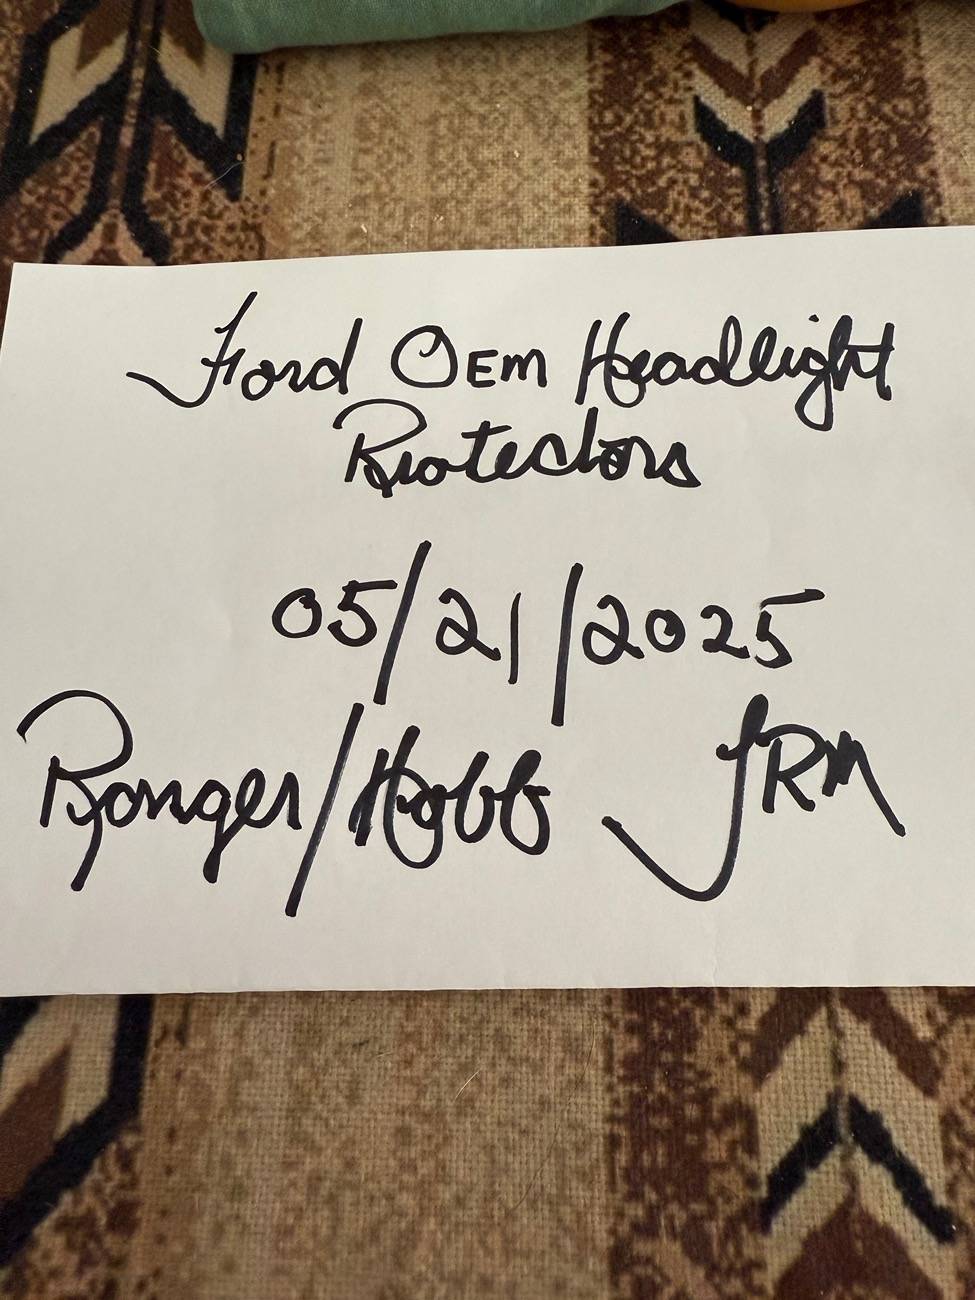 Ford OEM Headlight
Protectors
05/21/2025
Ranger/ JRM